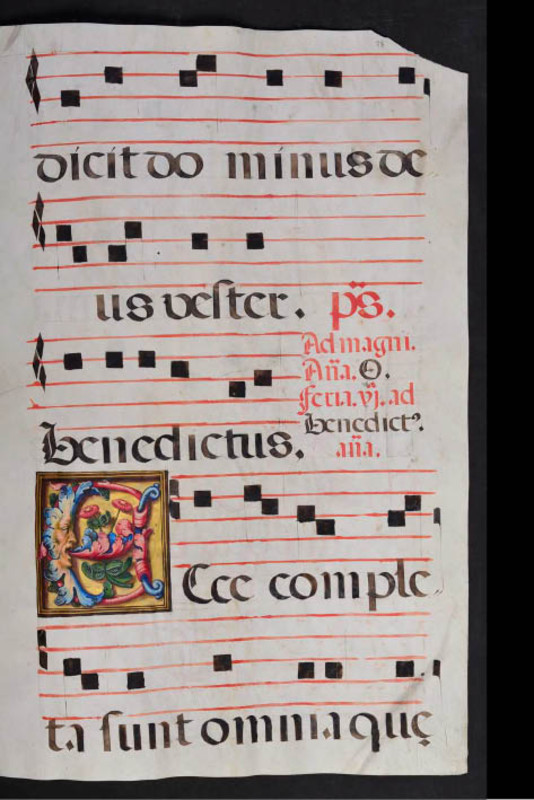 dicit do minus de
us vester. ps.
Ad magni.
Aña. O.
feria. vj. ad
Benedictus. benedict⁹.
aña.
Ecce comple
ta sunt omnia quę